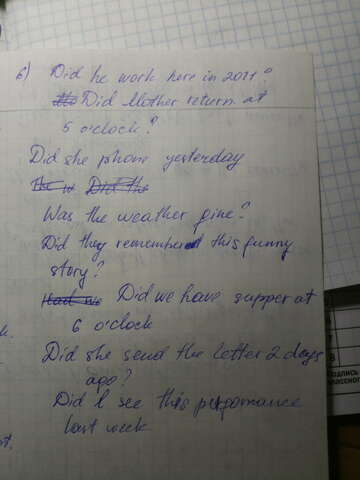 6) Did he work here in 2011?
Did Mother return at
5 o'clock?
Did she phone yesterday
The w Did the
Was the weather fine?
Did they remembered this funny
story?
Had we Did we have supper at
6 o'clock
Did she send the letter 2 days
ago?
Did I see this performance
last week
одпись
классного